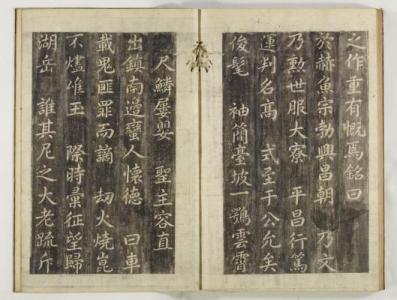 之作重有慨焉銘曰
於赫魚宗勃興昌朝 乃文
乃勲世服大寮 平昌行篤
運判名髙 式呈于公允矣
俊髦 袖簡臺坡一鶚雲霄
尺鱗屢嬰 聖主容直
出鎮南邉蠻人懐德 曰車
載鬼匪罪而謫 刼火燒崑
不燼维玉 際時彙征望歸
湖岳 誰其尼之大老疏斥